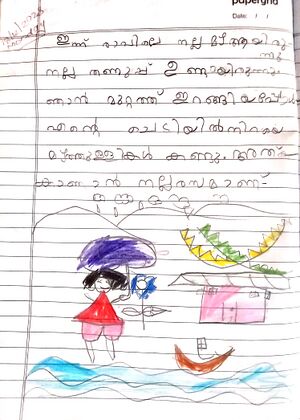 papergrid
Date: / /
ഇന്ന് രാവിലെ നല്ല മഴആയിരു
ന്നു
നല്ല തണുപ്പ് ഉണ്ടായിരുന്നു.
ഞാൻ മുറ്റത്ത് ഇറങ്ങിയപ്പോൾ
എന്റെ ചെടിയിൽനിറയെ
മഴത്തുള്ളികൾ കണ്ടു. അത്
കാണാൻ നല്ലരസമാണ്